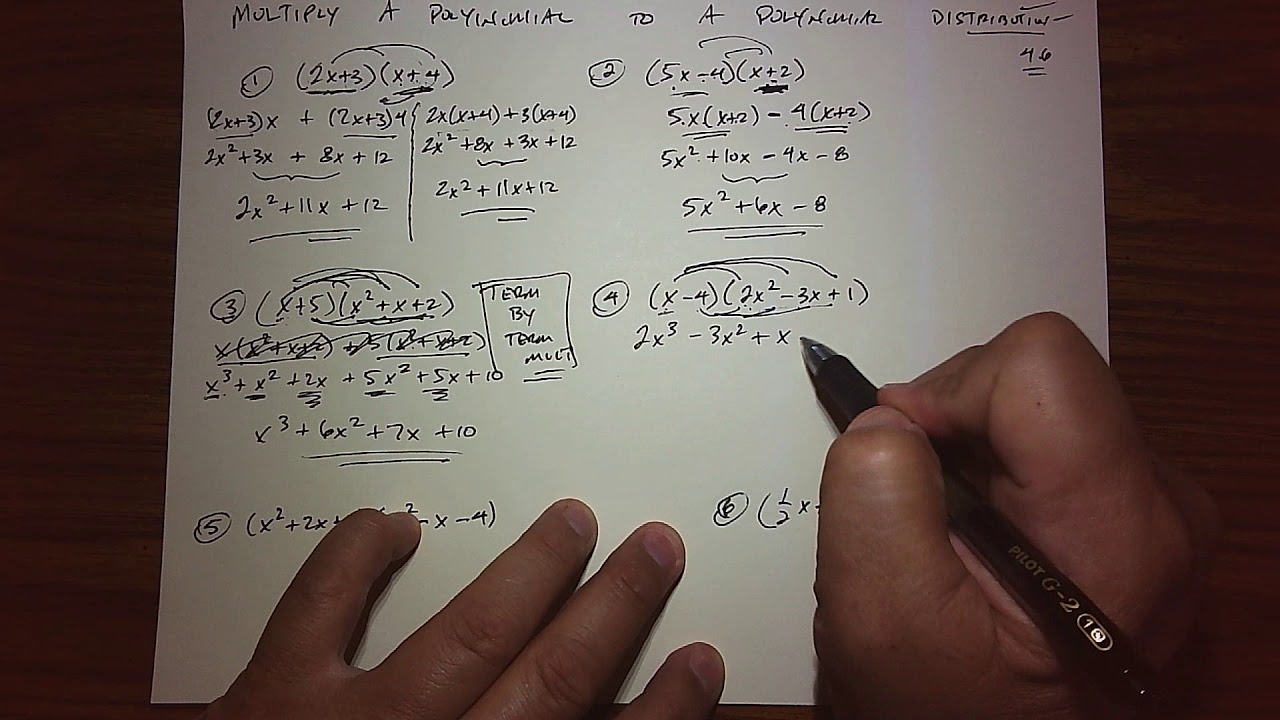 MULTIPLY A POLYINOMIAL TO A POLYNOMIAL DISTRIBUTION
4.6
① (2x+3)(x+4)
(2x+3)x + (2x+3)4
2x²+3x + 8x+12
2x²+11x+12
2x(x+4)+3(x+4)
2x²+8x+3x+12
2x²+11x+12
② (5x-4)(x+2)
5x(x+2) - 4(x+2)
5x²+10x-4x-8
5x²+6x-8
③ (x+5)(x²+x+2)
x(x²+x+2)+5(x²+x+2)
x³+x²+2x+5x²+5x+10
x³+6x²+7x+10
TERM
BY
TERM
MULT
④ (x-4)(2x²-3x+1)
2x³-3x²+x
⑤ (x²+2x+ -x-4)
⑥ (½x
PILOT G-2 10